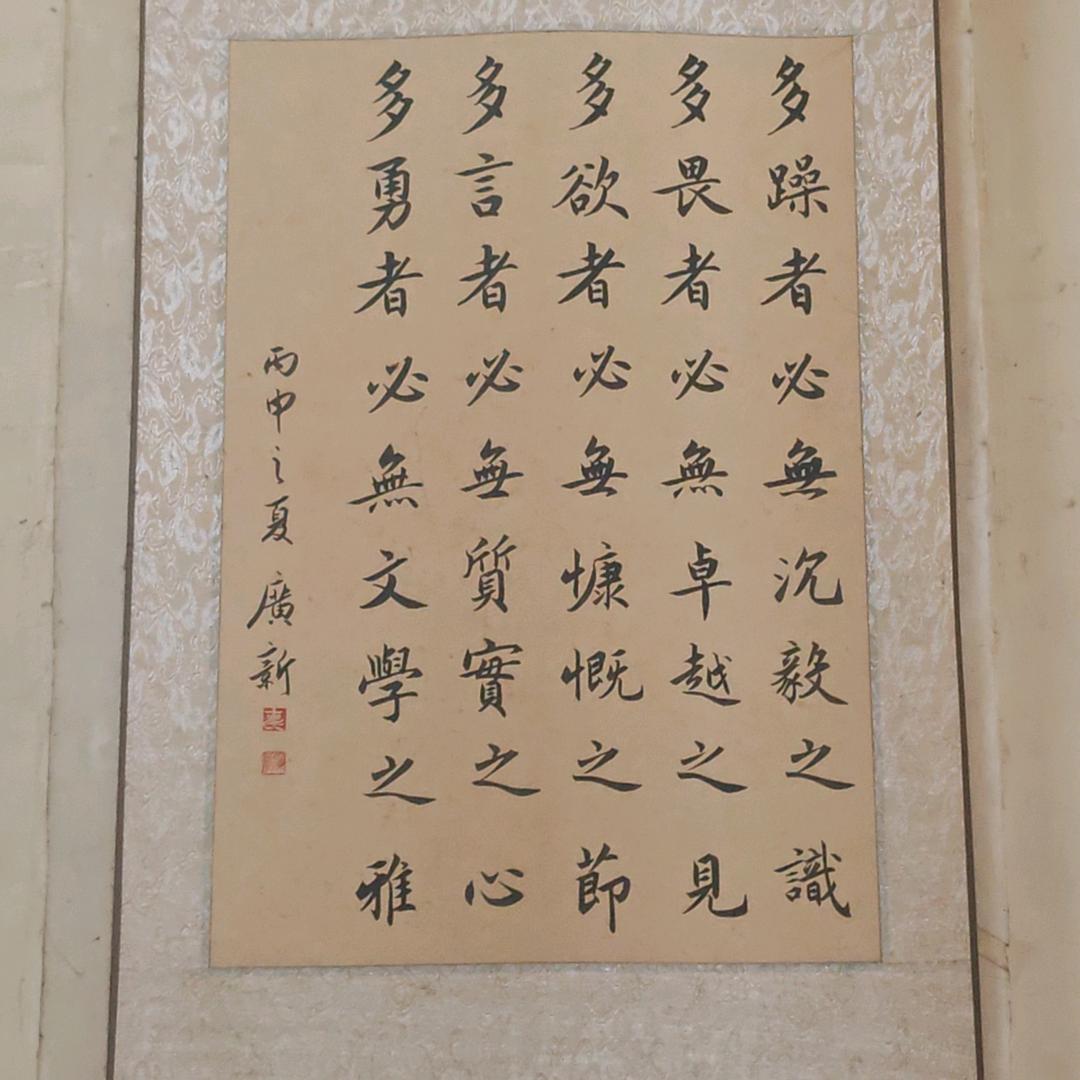 多躁者必無沉毅之識
多畏者必無卓越之見
多欲者必無慷慨之節
多言者必無質實之心
多勇者必無文學之雅
丙申之夏 廣新